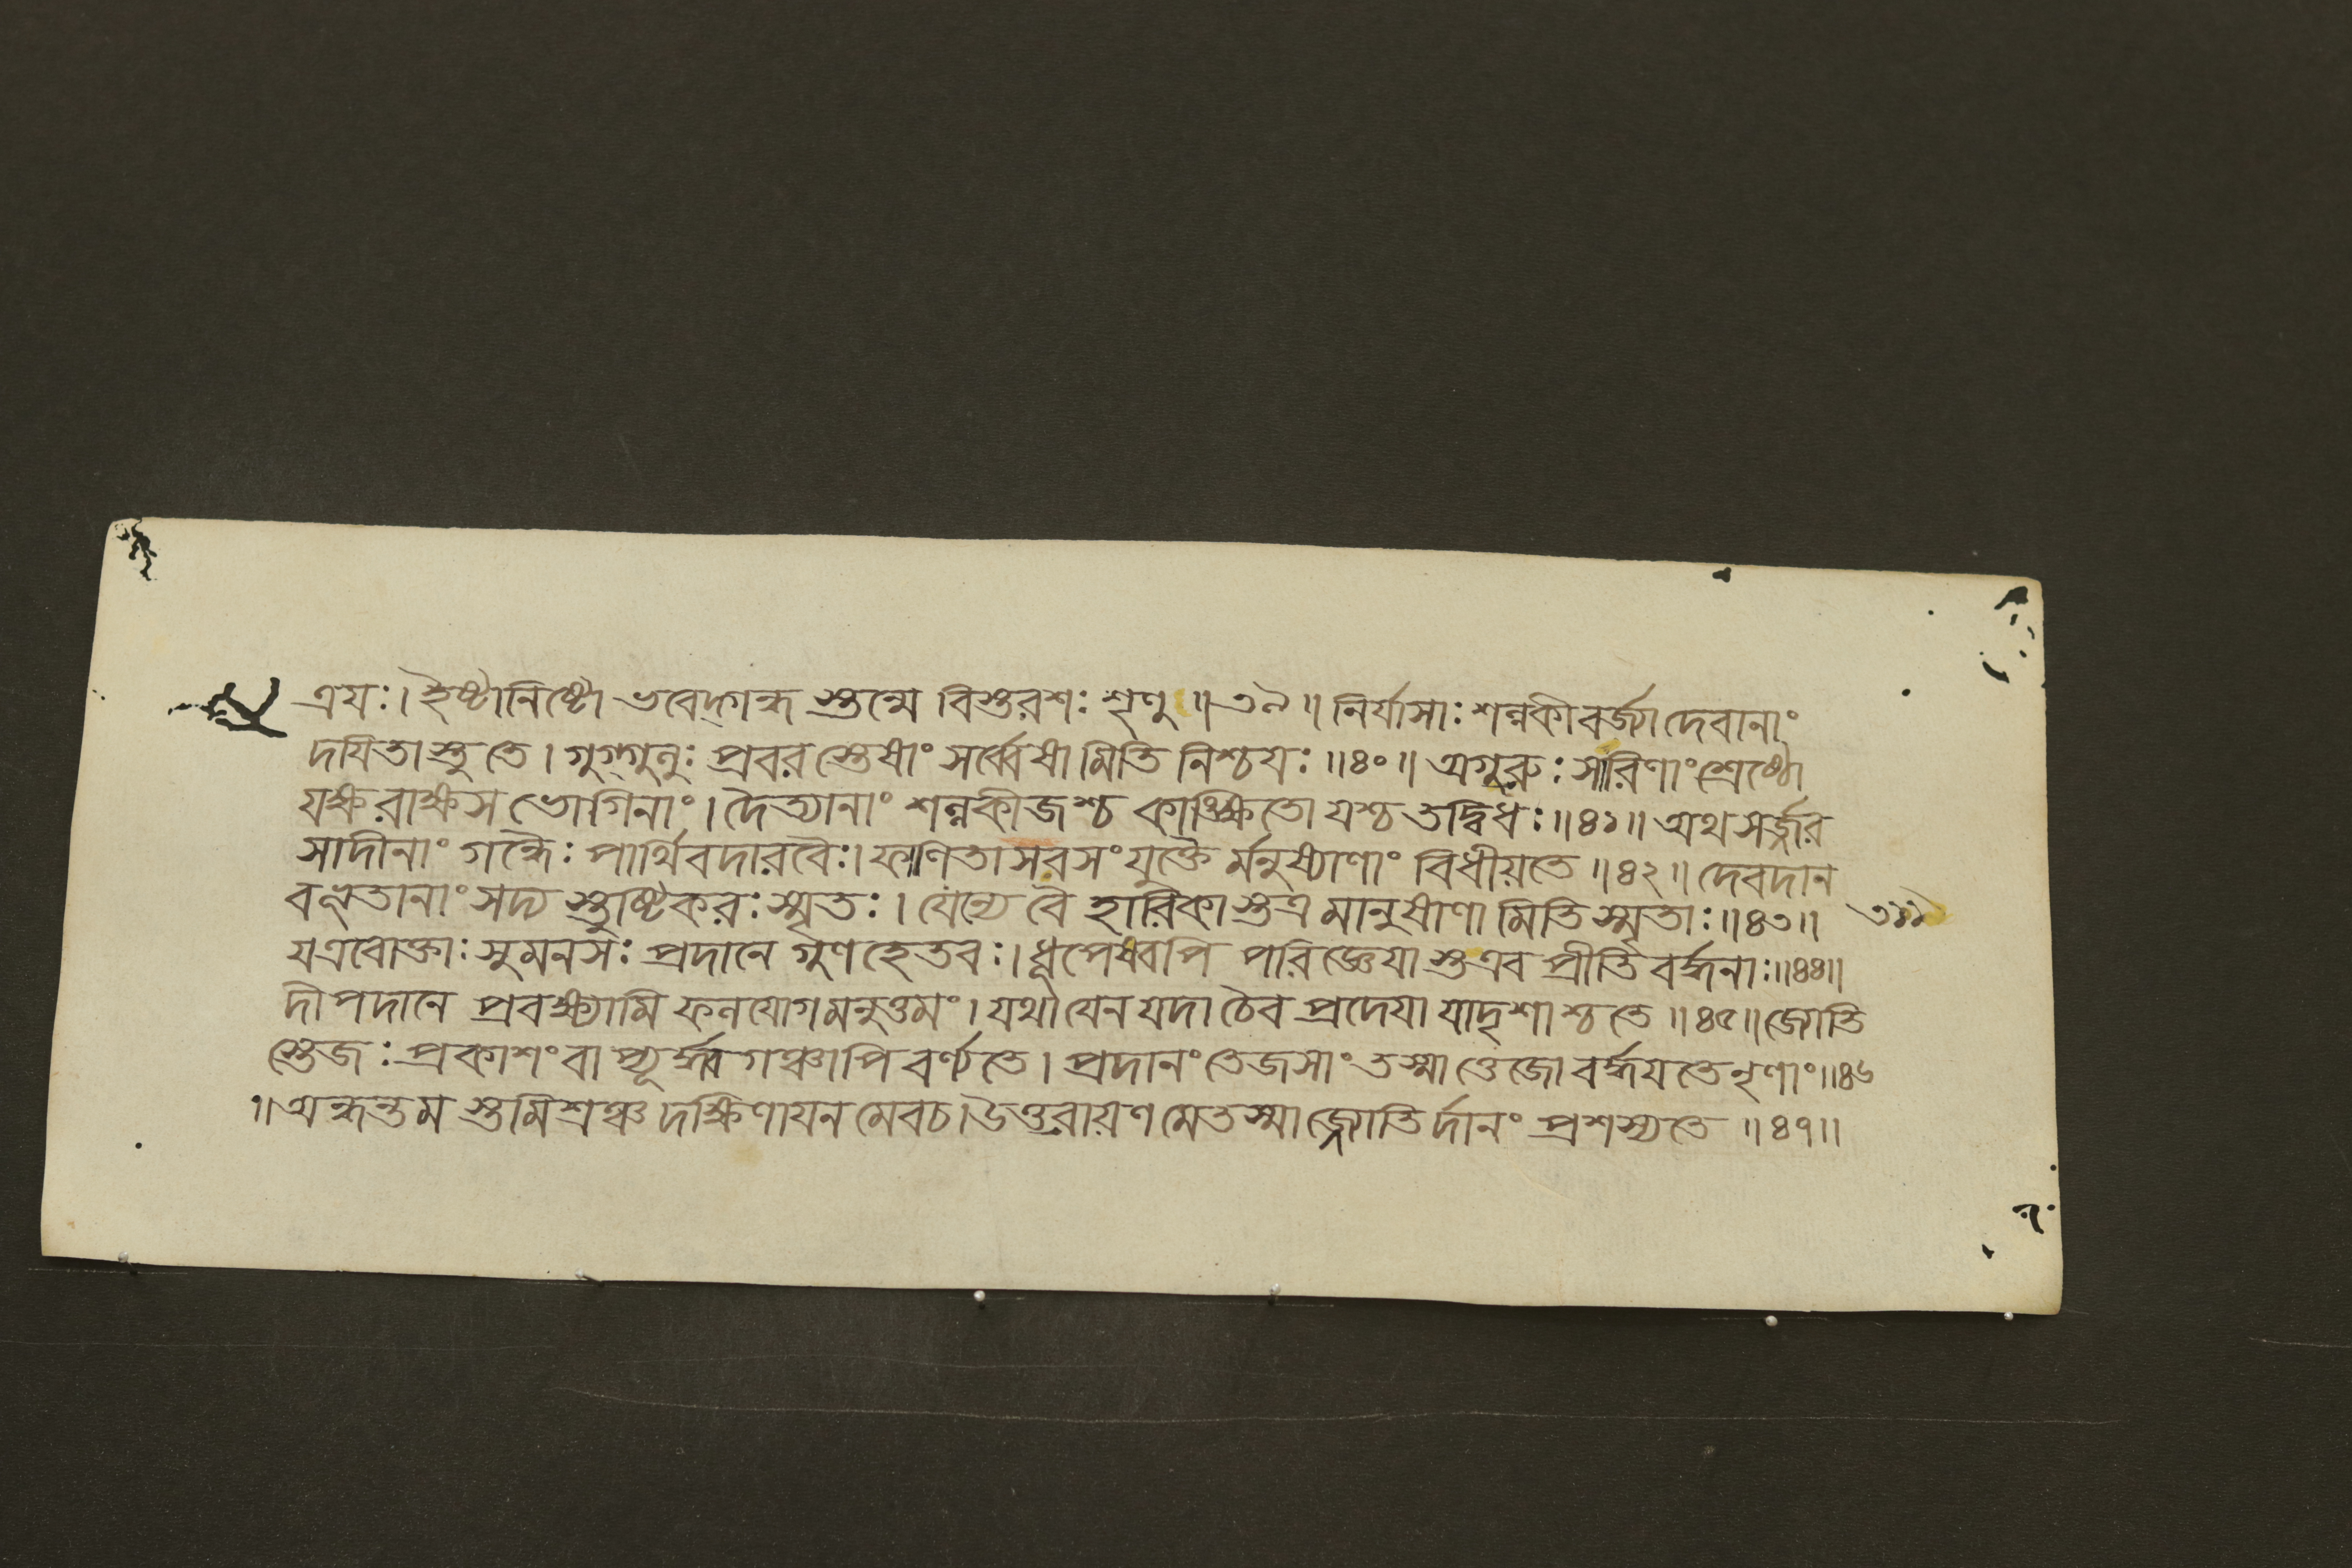 ত্রয়ঃ। ইষ্টানিষ্টো ভবেদ্গন্ধ স্তন্মে বিস্তরশঃ শৃণু ॥ ৩৯ ॥ নির্যাসাঃ শল্লকীবর্জ্যা দেবানাং
দয়িতাস্তু তে। গুগ্গুলুঃ প্রবরস্তেষাং সর্ব্বেষামিতি নিশ্চয়ঃ ॥ ৪০ ॥ অগুরুঃ সারিণাং শ্রেষ্ঠো
যক্ষরাক্ষসভোগিনাং। দৈত্যানাং শল্লকীজশ্চ কাঙ্ক্ষিতো যশ্চ তদ্বিধঃ ॥ ৪১ ॥ অথ সর্জ্জর
সাদীনাং গন্ধৈঃ পার্থিবদারবৈঃ। ফাণিতাসরসংযুক্তৈ র্মনুষ্যাণাং বিধীয়তে ॥ ৪২ ॥ দেবদান
বভূতানাং সদ্য স্তুষ্টিকরঃ স্মৃতঃ। যেন্যে বৈহারিকাস্তত্র মানুষাণামিতি স্মৃতাঃ ॥ ৪৩ ॥
য এবোক্তাঃ সুমনসঃ প্রদানে গুণহেতবঃ। ধূপেষ্বপি পরিজ্ঞেয়াস্ত এব প্রীতিবর্দ্ধনাঃ ॥ ৪৪ ॥
দীপদানে প্রবক্ষ্যামি ফলযোগমনুত্তমং। যথা যেন যদা চৈব প্রদেয়া যাদৃশাশ্চ তে ॥ ৪৫ ॥ জ্যোতি
স্তেজঃ প্রকাশং বাপ্যূর্দ্ধ্বগঞ্চাপি বর্ণ্যতে। প্রদানং তেজসাং তস্মাত্তেজো বর্দ্ধয়তে নৃণাং ॥ ৪৬
॥ অন্ধন্তমস্তমিশ্রঞ্চ দক্ষিণায়নমেবচ। উত্তরায়ণমেতস্মাজ্জ্যোতির্দানং প্রশস্যতে ॥ ৪৭ ॥